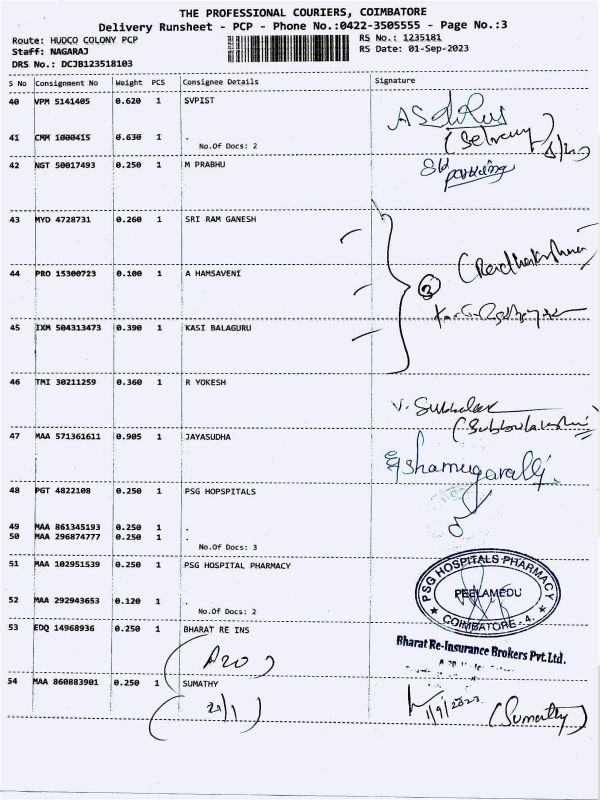 THE PROFESSIONAL COURIERS, COIMBATORE
Delivery Runsheet - PCP - Phone No.:0422-3505555 - Page No.:3
Route: HUDCO COLONY PCP
RS No.: 1235181
Staff: NAGARAJ
RS Date: 01-Sep-2023
DRS No.: DCJB123518103
S No Consignment No Weight PCS Consignee Details Signature
40 VPM 5141405 0.620 1 SVPIST
41 CMM 1000415 0.630 1 .
No.Of Docs: 2
(Selvamy)
42 NGT 50017493 0.250 1 M PRABHU
43 MYD 4728731 0.260 1 SRI RAM GANESH
44 PRO 15300723 0.100 1 A HAMSAVENI
3
45 IXM 504313473 0.390 1 KASI BALAGURU
46 TMI 30211259 0.360 1 R YOKESH
47 MAA 571361611 0.905 1 JAYASUDHA
48 PGT 4822108 0.250 1 PSG HOPSPITALS
49 MAA 861345193 0.250 1 .
50 MAA 296874777 0.250 1 .
No.Of Docs: 3
51 MAA 102951539 0.250 1 PSG HOSPITAL PHARMACY
PSG HOSPITALS PHARMACY
PEELAMEDU
COIMBATORE - 4.
52 MAA 292943653 0.120 1 .
No.Of Docs: 2
53 EDQ 14968936 0.250 1 BHARAT RE INS
Bharat Re-Insurance Brokers Pvt.Ltd.
(A20)
54 MAA 860883901 0.250 1 SUMATHY
1/9/2023
(Sumathy)